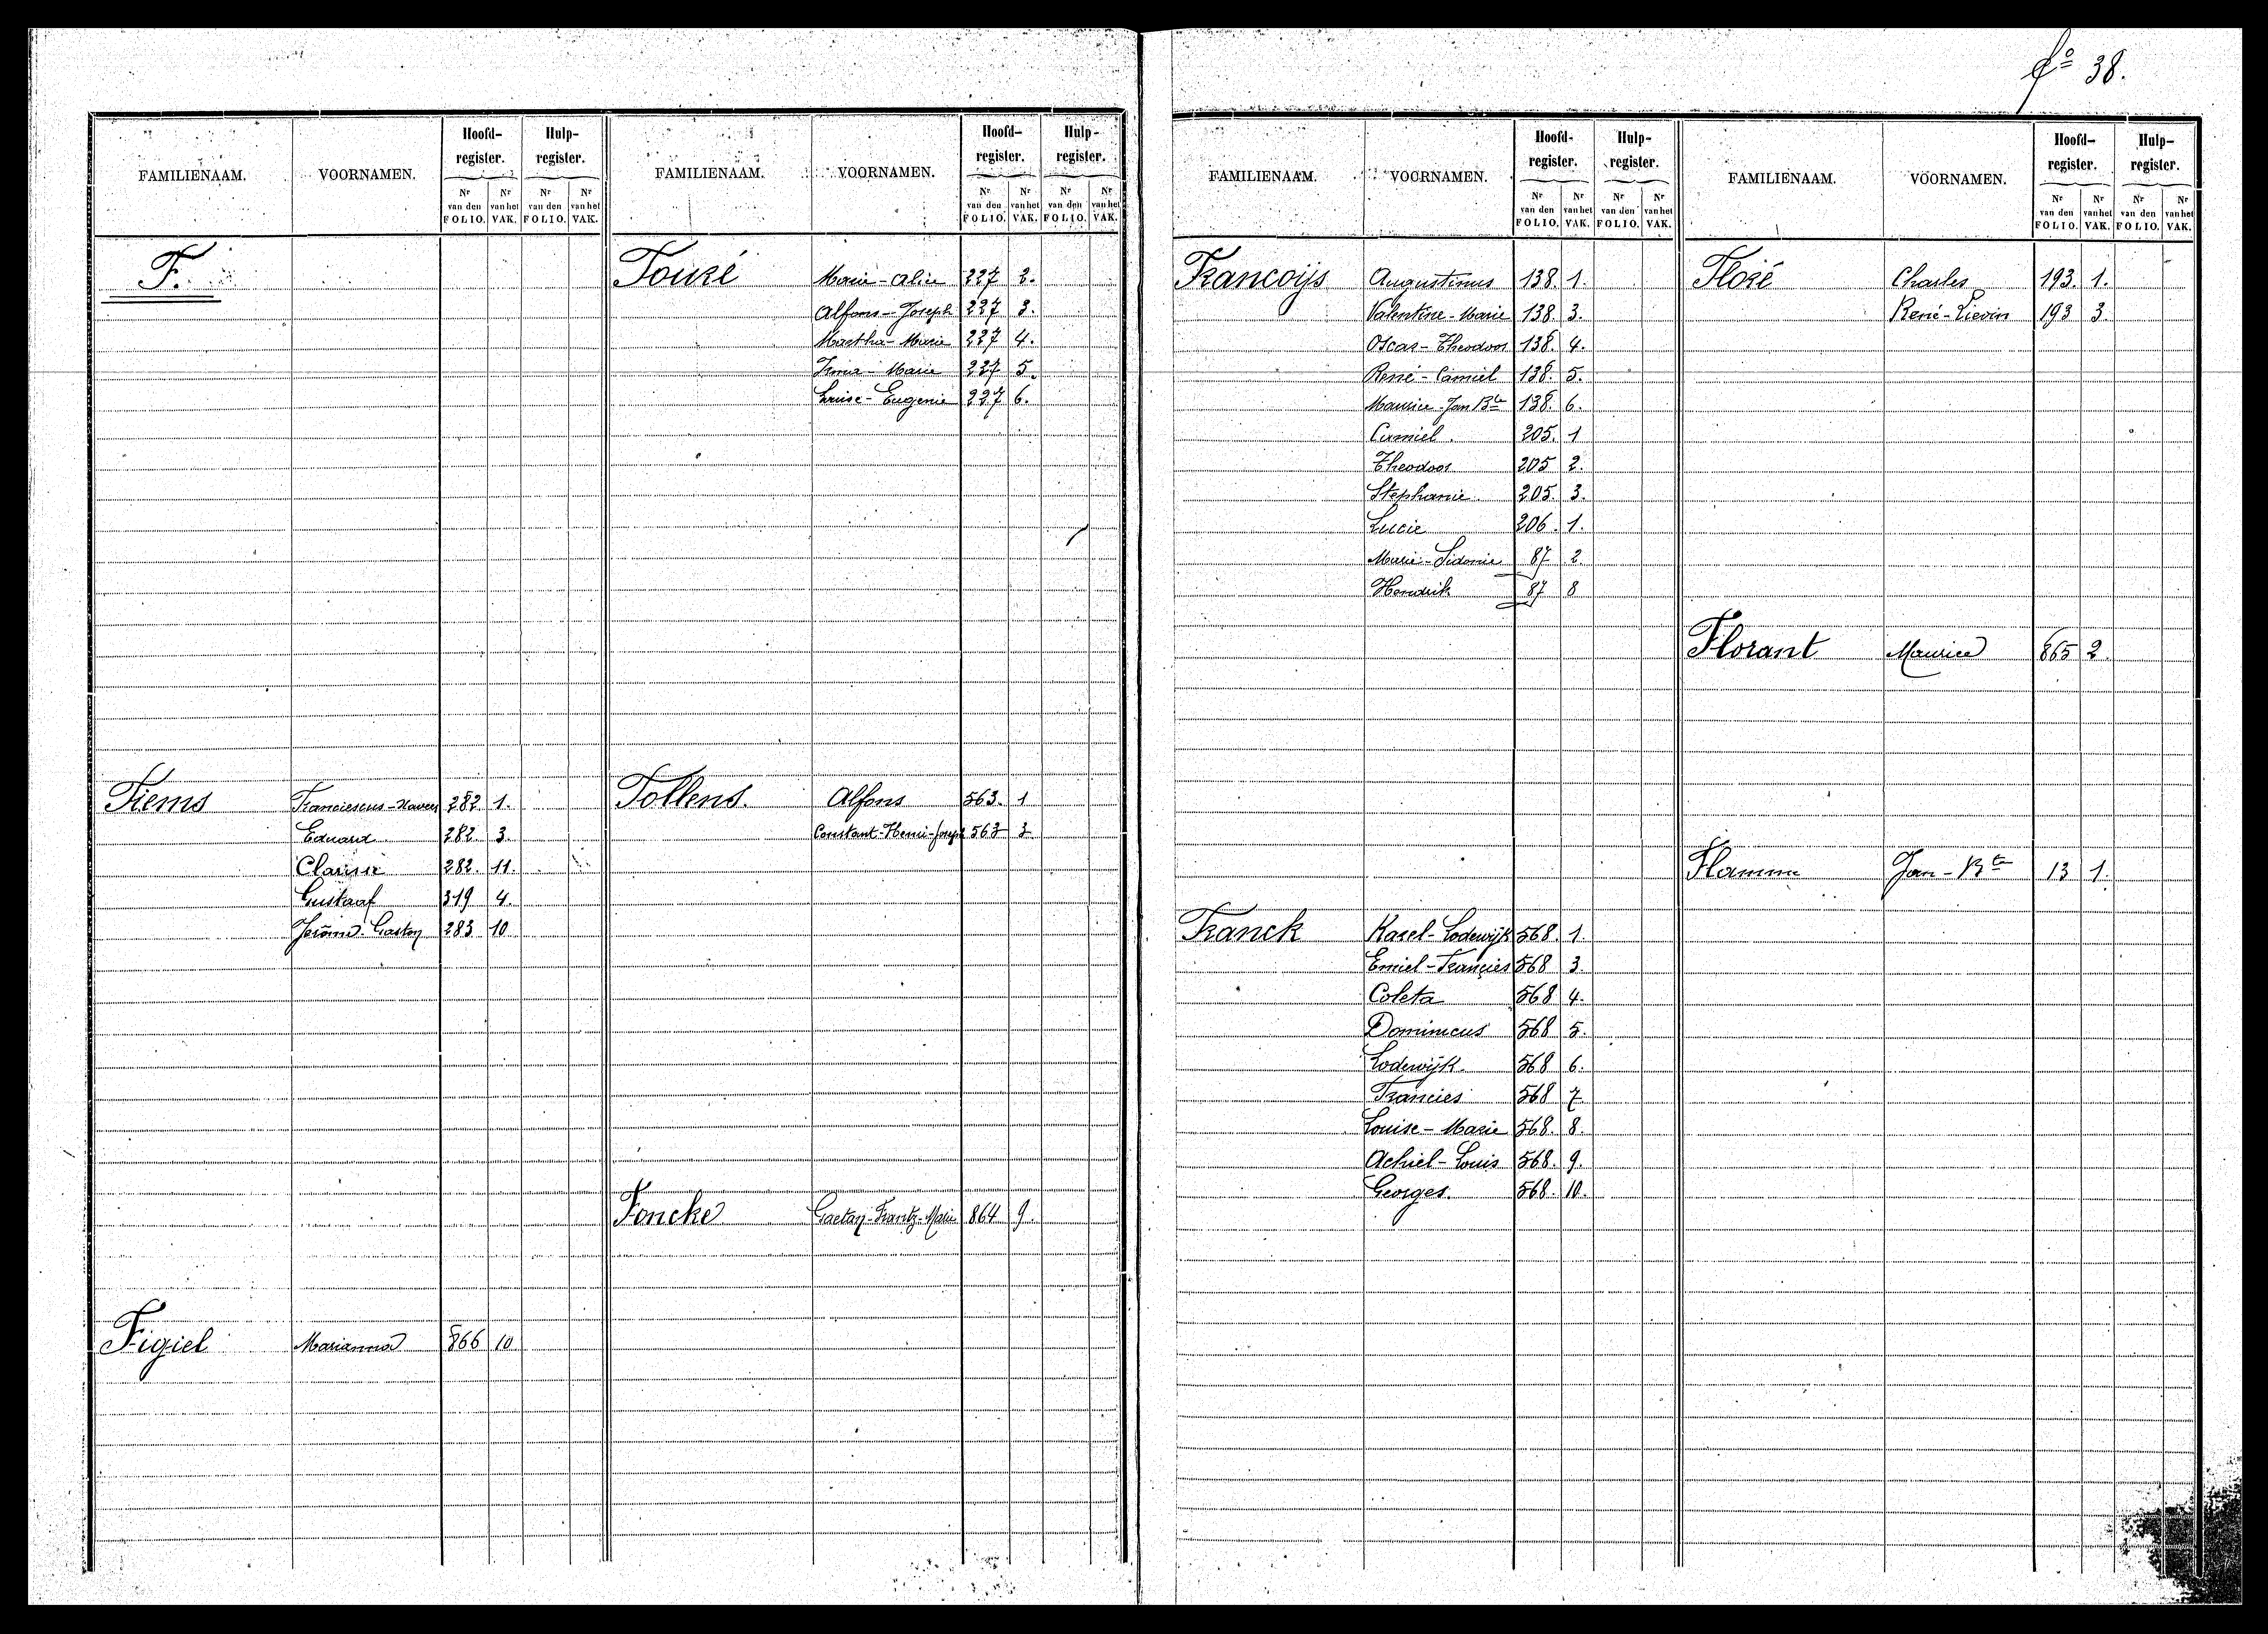 fo 38.
FAMILIENAAM. VOORNAMEN. Hoofd-register. Hulp-register.
Nr van den FOLIO. Nr van het VAK. Nr van den FOLIO. Nr van het VAK.
F.
Fiems Franciescus-Xaveer 282 1.
Eduard 282. 3.
Clarisse 282. 11
Gustaaf 319 4.
Jerôme Gaston 283 10
Figiel Marianna 866 10
FAMILIENAAM. VOORNAMEN. Hoofd-register. Hulp-register.
Nr van den FOLIO. Nr van het VAK. Nr van den FOLIO. Nr van het VAK.
Fouré Marie-Alice 227 2.
Alfons-Joseph 227 3.
Martha-Marie 227 4.
Irma-Marie 227 5.
Louise-Eugenie 227 6.
Follens. Alfons 563. 1
Constant-Henri-Joseph 563 3
Foncke Gaetan-Frantz-Marie 864 9.
FAMILIENAAM. VOORNAMEN. Hoofd-register. Hulp-register.
Nr van den FOLIO. Nr van het VAK. Nr van den FOLIO. Nr van het VAK.
Francoijs Augustinus 138. 1.
Valentine-Marie 138. 3.
Oscar-Theodoor 138. 4.
René-Camiel 138. 5.
Maurice-Jan Bte 138. 6.
Camiel. 205. 1
Theodoor 205 2.
Stephanie 205. 3.
Lucie 206. 1.
Marie-Sidonie 87 2
Hendrik 87 8
Franck Karel-Lodewijk 568. 1.
Emiel-Francies 568 3.
Coleta 568 4.
Dominicus 568 5.
Lodewijk 568 6.
Francies 568 7
Louise-Marie 568. 8.
Achiel-Louis 568. 9.
Georges. 568. 10.
FAMILIENAAM. VOORNAMEN. Hoofd-register. Hulp-register.
Nr van den FOLIO. Nr van het VAK. Nr van den FOLIO. Nr van het VAK.
Floré Charles 193. 1.
René-Lievin 193 3.
Florant Maurice 865 2.
Flamme Jan-Bte 13 1.